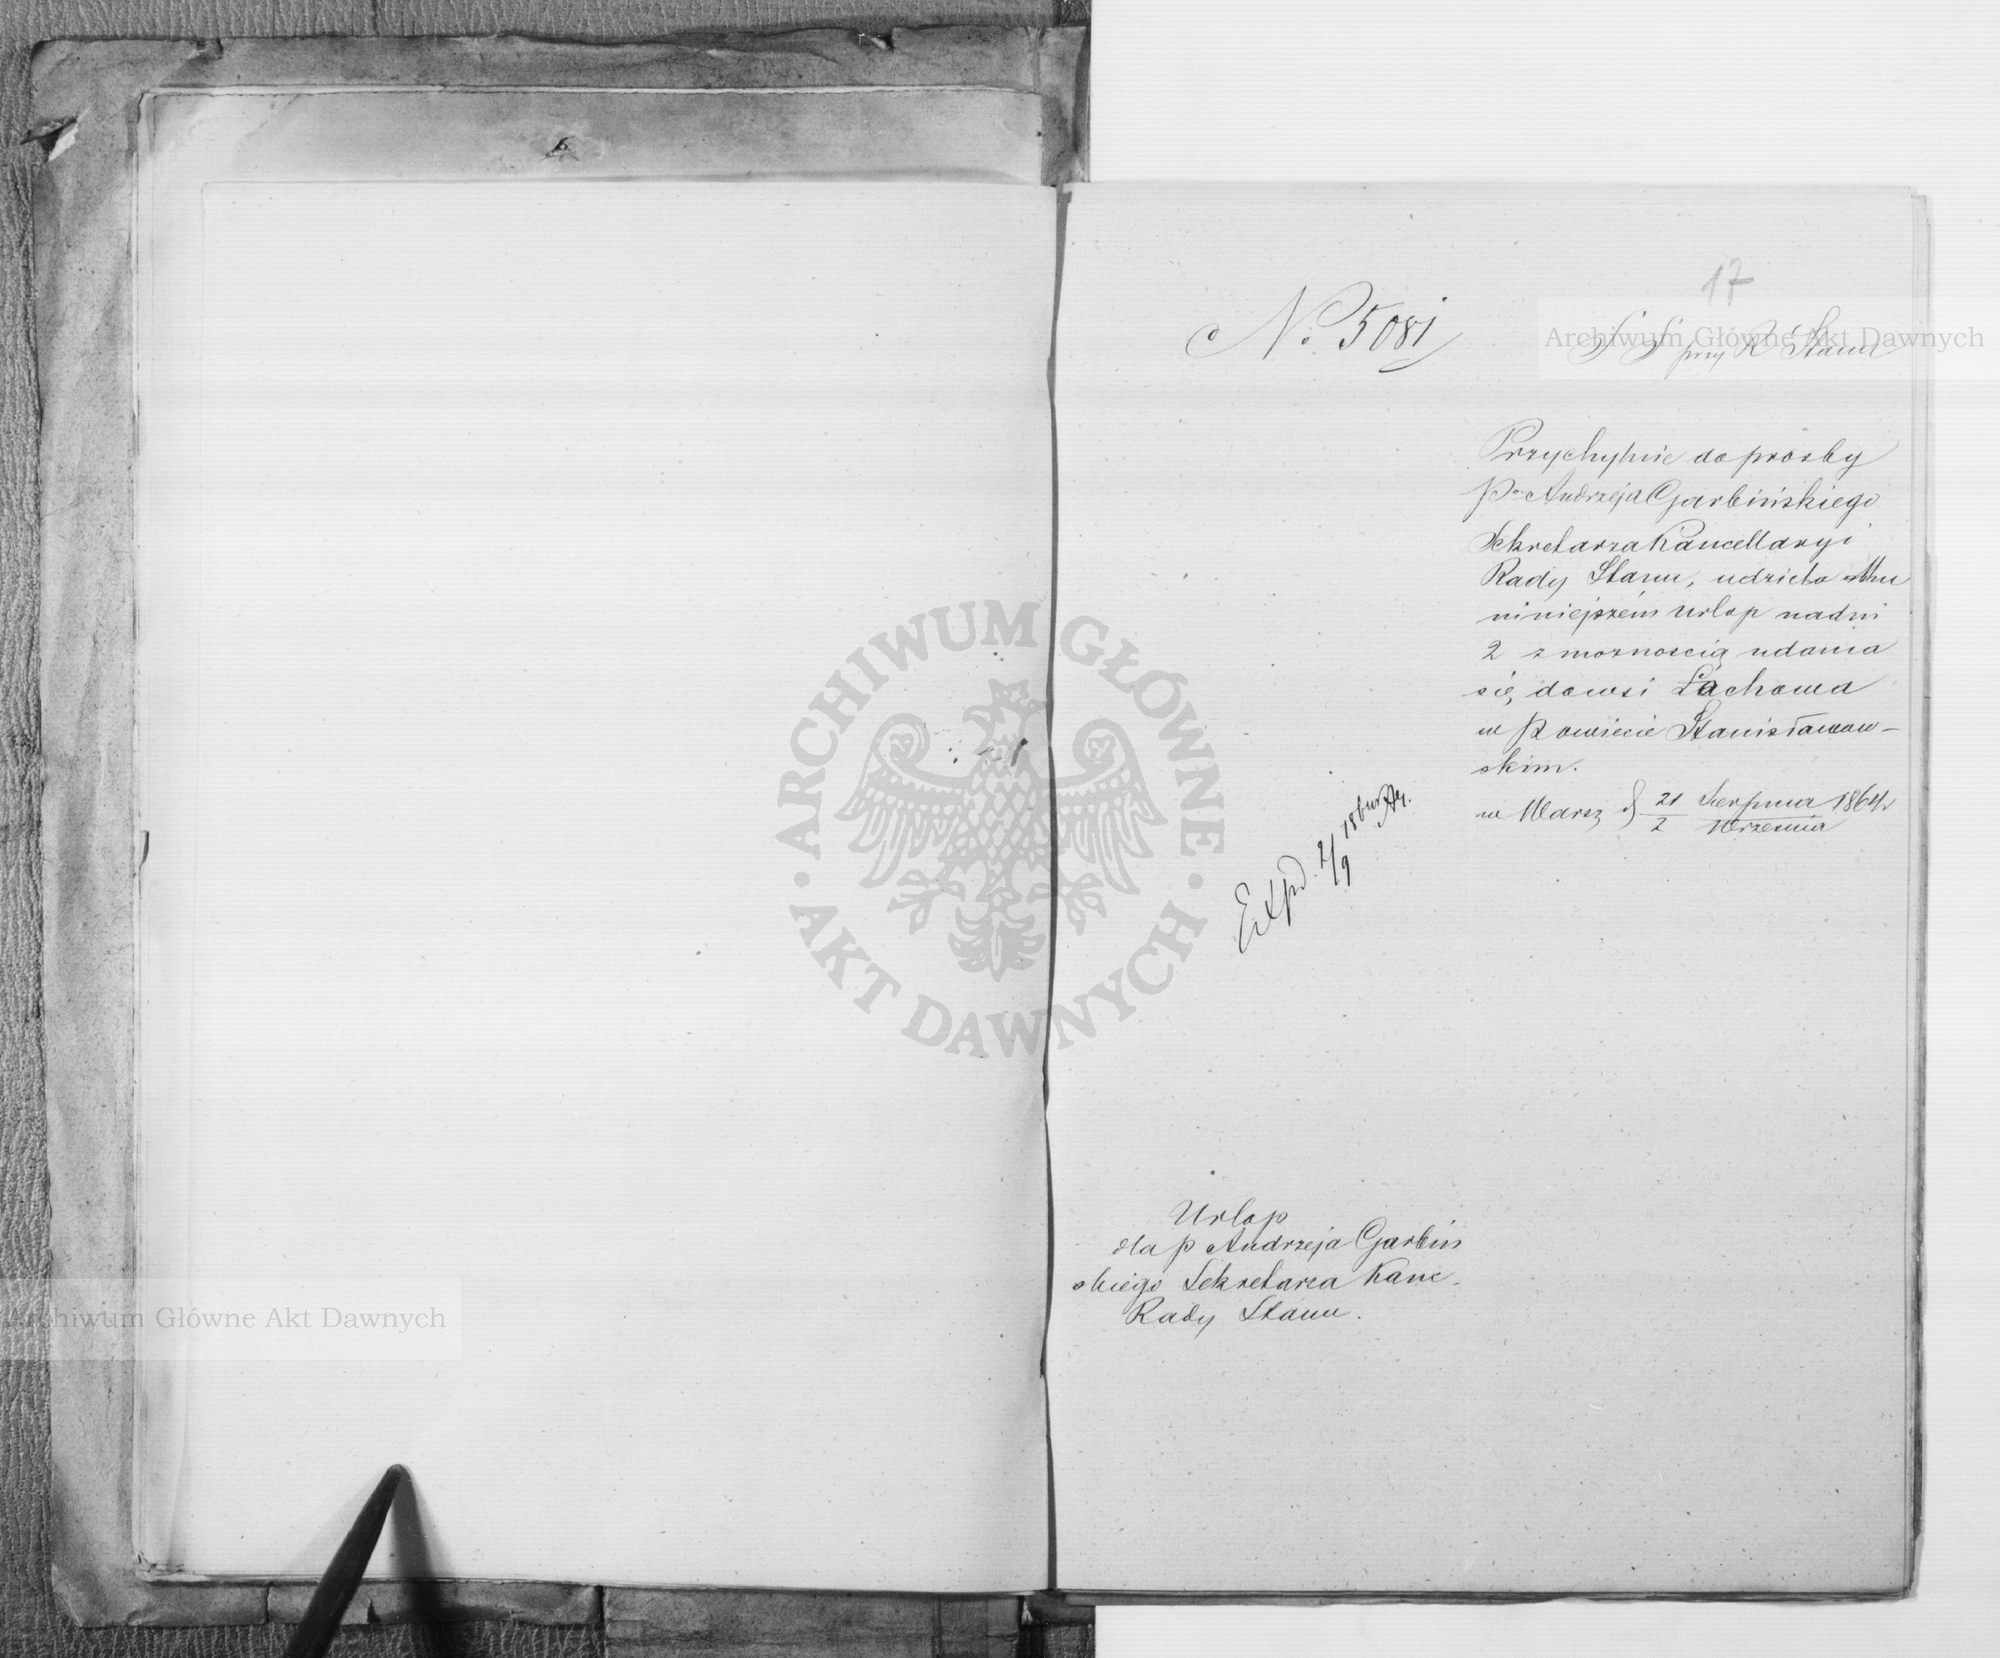 17
No 5081
S S przy R Stanu
Przychylnie do prośby
Pa Andrzeja Garbińskiego
Sekretarza Kancellaryi
Rady Stanu, udziela
niniejszém urlop na dni
2 z możnością udania
się do wsi Łąchowa
w Powiecie Stanisławow-
skim.
w Warsz d 21/2 Sierpnia/Września 1864 r
Expd. 2/9
Urlop
dla p Andrzeja Garbiń
skiego Sekretarza Kanc.
Rady Stanu.
ARCHIWUM GŁÓWNE
AKT DAWNYCH
Archiwum Główne Akt Dawnych
Archiwum Główne Akt Dawnych